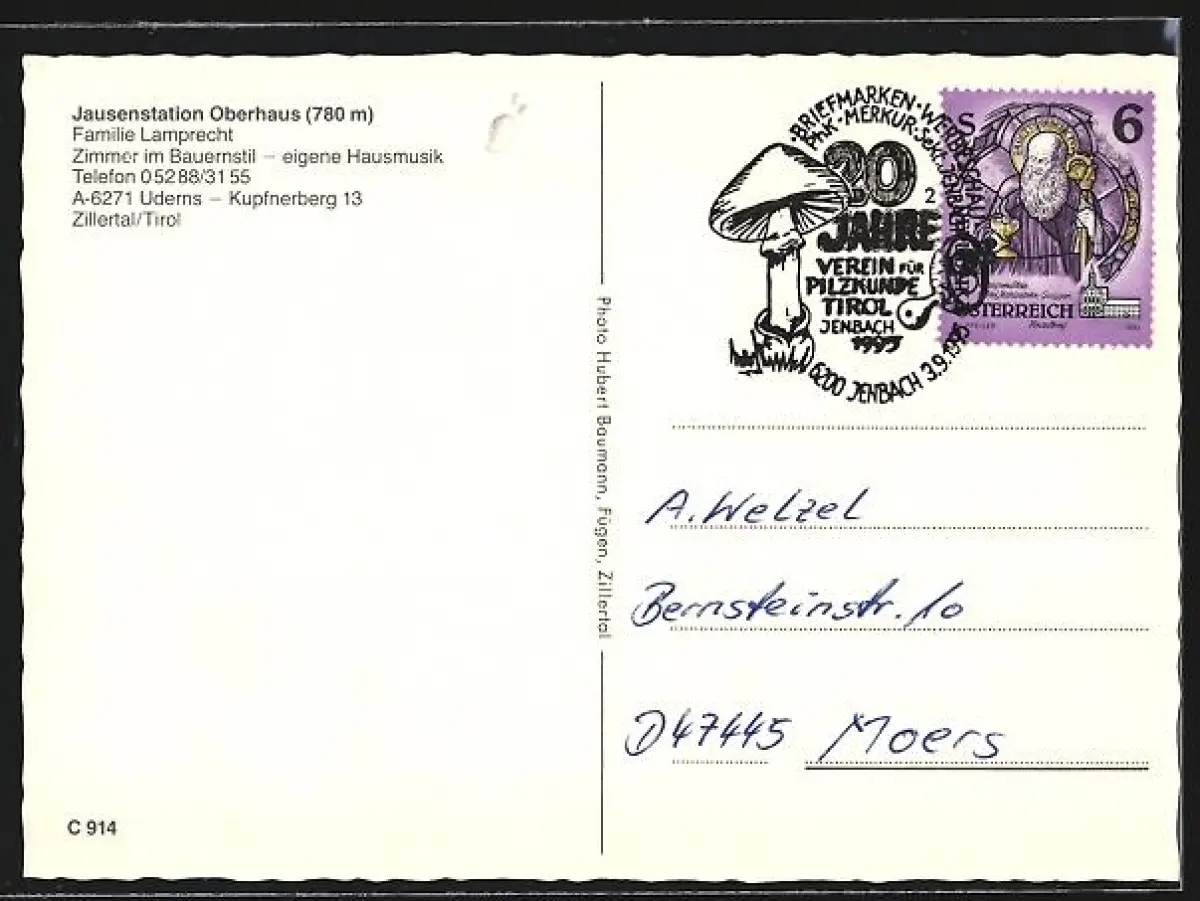 Jausenstation Oberhaus (780 m)
Familie Lamprecht
Zimmer im Bauernstil – eigene Hausmusik
Telefon 05288/3155
A-6271 Uderns – Kupfnerberg 13
Zillertal/Tirol
C 914
Photo Hubert Baumann, Fügen, Zillertal
BRIEFMARKEN-WERBESCHAU
PhK-MERKUR-Sekt. JENBACH
20
JAHRE
VEREIN FÜR
PILZKUNDE
TIROL
JENBACH
1995
6200 JENBACH 3.9.1995
2
S 6
ÖSTERREICH
A. Welzel
Bernsteinstr. 10
D 47445 Moers